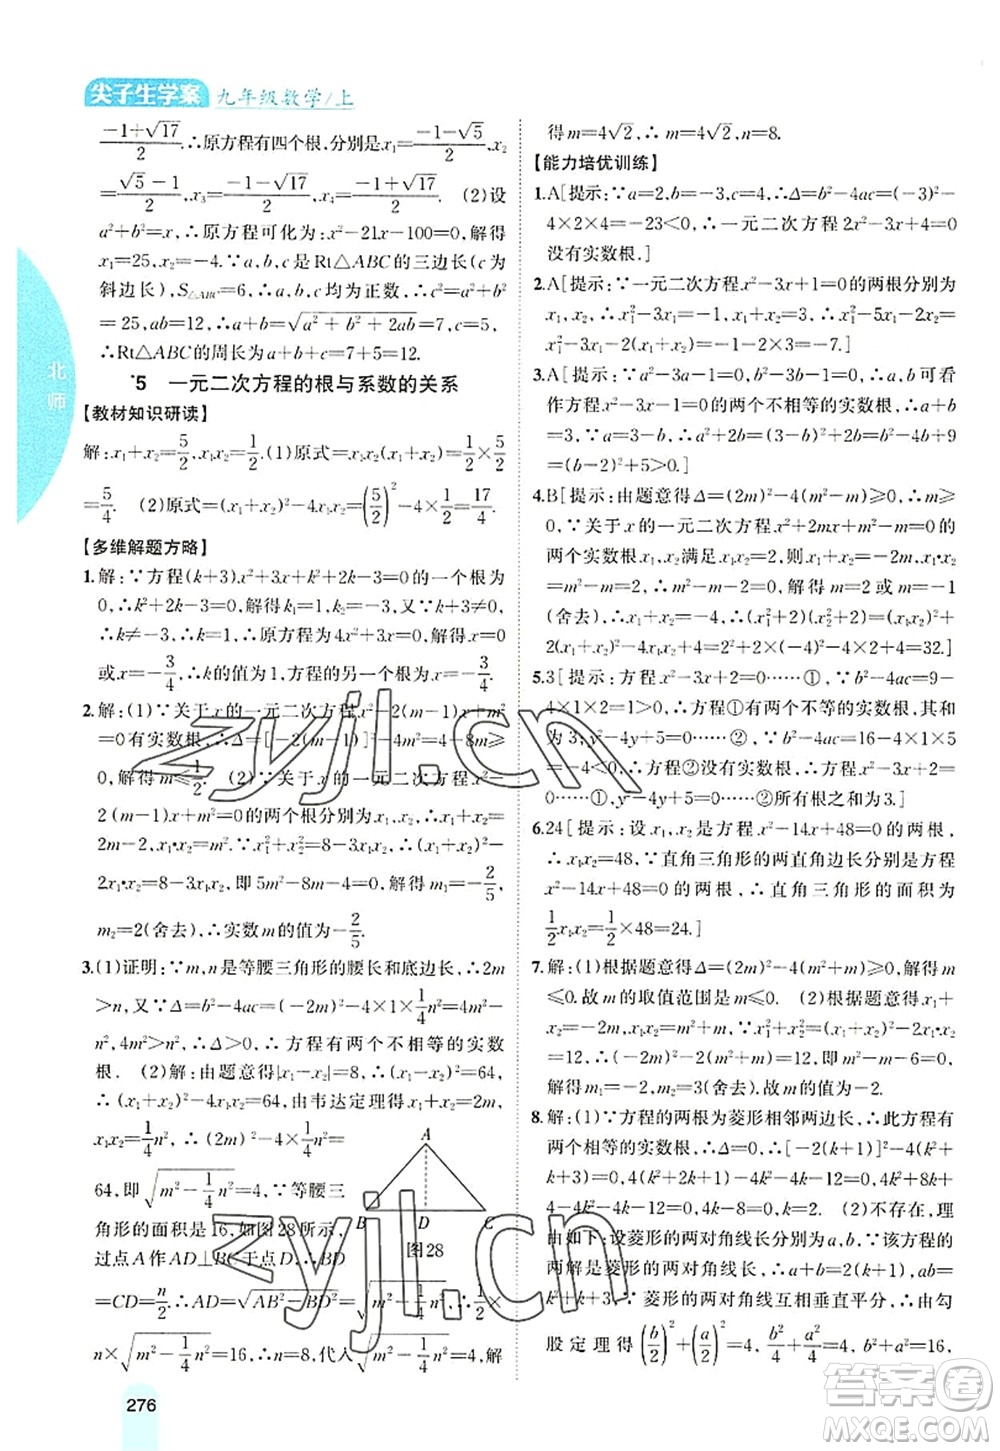 尖子生学案 九年级数学/上
北师
$\frac{-1+\sqrt{17}}{2}$.∴原方程有四个根,分别是$x_1=\frac{-1-\sqrt{5}}{2}$,$x_2$
$=\frac{\sqrt{5}-1}{2}$,$x_3=\frac{-1-\sqrt{17}}{2}$,$x_4=\frac{-1+\sqrt{17}}{2}$. (2)设
$a^2+b^2=x$,∴原方程可化为:$x^2-21x-100=0$,解得
$x_1=25$,$x_2=-4$.∵a,b,c是Rt△ABC的三边长(c为
斜边长),$S_{△ABC}=6$,∴a,b,c均为正数,$a^2+b^2=c^2$
=25,ab=12,∴$a+b=\sqrt{a^2+b^2+2ab}=7$,c=5,
∴Rt△ABC的周长为a+b+c=7+5=12.
*5 一元二次方程的根与系数的关系
【教材知识研读】
解:$x_1+x_2=\frac{5}{2}$,$x_1x_2=\frac{1}{2}$.(1)原式=$x_1x_2(x_1+x_2)=\frac{1}{2}×\frac{5}{2}$
$=\frac{5}{4}$. (2)原式=$(x_1+x_2)^2-4x_1x_2=\left(\frac{5}{2}\right)^2-4×\frac{1}{2}=\frac{17}{4}$.
【多维解题方略】
1.解:∵方程$(k+3)x^2+3x+k^2+2k-3=0$的一个根为
0,∴$k^2+2k-3=0$,解得$k_1=1$,$k_2=-3$.∵k+3≠0,
∴k≠-3,∴k=1,∴原方程为$4x^2+3x=0$,解得x=0
或$x=-\frac{3}{4}$,∴k的值为1,方程的另一个根为$-\frac{3}{4}$.
2.解:(1)∵关于x的一元二次方程$x^2-2(m-1)x+m^2$
=0有实数根,∴$Δ=[-2(m-1)]^2-4m^2=4-8m≥$
0,解得$m≤\frac{1}{2}$. (2)∵关于x的一元二次方程$x^2-$
$2(m-1)x+m^2=0$的两个根分别为$x_1$,$x_2$,∴$x_1+x_2=$
2m-2,$x_1·x_2=m^2$.∵$x_1^2+x_2^2=8-3x_1x_2$,∴$(x_1+x_2)^2-$
$2x_1·x_2=8-3x_1x_2$,即$5m^2-8m-4=0$,解得$m_1=-\frac{2}{5}$,
$m_2=2$(舍去),∴实数m的值为$-\frac{2}{5}$.
3.(1)证明:∵m,n是等腰三角形的腰长和底边长,∴2m
>n,又∵$Δ=b^2-4ac=(-2m)^2-4×1×\frac{1}{4}n^2=4m^2-$
$n^2$,4$m^2>n^2$,∴Δ>0,∴方程有两个不相等的实数
根. (2)解:由题意得$|x_1-x_2|=8$,∴$(x_1-x_2)^2=64$,
∴$(x_1+x_2)^2-4x_1x_2=64$,由韦达定理得$x_1+x_2=2m$,
$x_1x_2=\frac{1}{4}n^2$,∴$(2m)^2-4×\frac{1}{4}n^2=$
64,即$\sqrt{m^2-\frac{1}{4}n^2}=4$,∵等腰三
角形的面积是16,如图28所示,
过点A作AD⊥BC于点D,∴BD
$=CD=\frac{n}{2}$,∴$AD=\sqrt{AB^2-BD^2}=\sqrt{m^2-\frac{1}{4}n^2}$,∴$\frac{1}{2}×$
$n×\sqrt{m^2-\frac{1}{4}n^2}=16$,∴n=8,代入$\sqrt{m^2-\frac{1}{4}n^2}=4$,解
A
B D C
图28
276
得$m=4\sqrt{2}$,∴$m=4\sqrt{2}$,n=8.
【能力培优训练】
1.A[提示:∵a=2,b=-3,c=4,∴$Δ=b^2-4ac=(-3)^2-$
4×2×4=-23<0,∴一元二次方程$2x^2-3x+4=0$
没有实数根.]
2.A[提示:∵一元二次方程$x^2-3x+1=0$的两根分别为
$x_1$,$x_2$,∴$x_1^2-3x_1+1=0$,∴$x_1^2-3x_1=-1$,$x_1x_2=1$,
∴$x_1^2-3x_1-x_1x_2+2=-1-1+2=0$.]
3.A[提示:∵$a^2-3a-1=0$,$b^2-3b-1=0$,∴a,b可看
作方程$x^2-3x-1=0$的两个不相等的实数根,∴a+b
=3,∵a<b,∴a+b<2b,∴2b>3,$b>\frac{3}{2}$,∴$f(2)=4$
−6−1=−3<0,∴b>2,2b−5>0.]
4.B[提示:由题意得$Δ=(2m)^2-4(m^2-m)≥0$,∴m≥
0,∵关于x的一元二次方程$x^2+2mx+m^2-m=0$的
两个实数根$x_1$,$x_2$满足$x_1x_2=2$,则$x_1+x_2=-2m$,$x_1·x_2$
$=m^2-m=2$,∴$m^2-m-2=0$,解得m=2或m=-1
(舍去),∴$x_1+x_2=-4$,∴$(x_1^2+2)(x_2^2+2)=(x_1x_2)^2+$
$2(x_1+x_2)^2-4x_1x_2+4=2^2+2×(-4)^2-4×2+4=32$.]
5.3[提示:方程$x^2-3x+2=0$……①,∵$b^2-4ac=9-$
4×1×2=1>0,∴方程①有两个不相等的实数根,和
为3,$y^2-4y+5=0$……②,∵$b^2-4ac=16-4×1×5$
=-4<0,∴方程②没有实数根,∴方程$x^2-3x+2=0$
……①,$y^2-4y+5=0$……②所有根之和为3.]
6.24[提示:设$x_1$,$x_2$是方程$x^2-14x+48=0$的两根,
∴$x_1x_2=48$,∵直角三角形的两直角边长分别是方程
$x^2-14x+48=0$的两根,∴直角三角形的面积为
$\frac{1}{2}x_1x_2=\frac{1}{2}×48=24$.]
7.解:(1)根据题意得$Δ=(2m)^2-4(m^2+m)≥0$,解得m
≤0.故m的取值范围是m≤0. (2)根据题意得$x_1+$
$x_2=-2m$,$x_1x_2=m^2+m$,∵$x_1^2+x_2^2=(x_1+x_2)^2-2x_1x_2$
=12,∴$(-2m)^2-2(m^2+m)=12$,即$m^2-m-6=0$,
解得$m_1=-2$,$m_2=3$(舍去).故m的值为-2.
8.解:(1)∵方程的两根为菱形相邻两边长,∴此方程有
两个相等的实数根,∴Δ=0,∴$[-2(k+1)]^2-4(k^2+$
k+3)=0,$4(k^2+2k+1)-4k^2-4k-12=0$,$4k^2+8k$
$+4-4k^2-4k-12=0$,4k-8=0,k=2. (2)原方程
由题如下:设菱形的两对角线长分别为a,b,∵方程的
两解是菱形的两对角线长,∴a+b=2(k+1),ab=
$k^2+k+3$,∵菱形的两对角线互相垂直平分,∴由勾
股定理得$\left(\frac{b}{2}\right)^2+\left(\frac{a}{2}\right)^2=4$,$\frac{b^2}{4}+\frac{a^2}{4}=4$,$a^2+b^2=16$,
zyjl.cn
zyjl.cn
答案圈